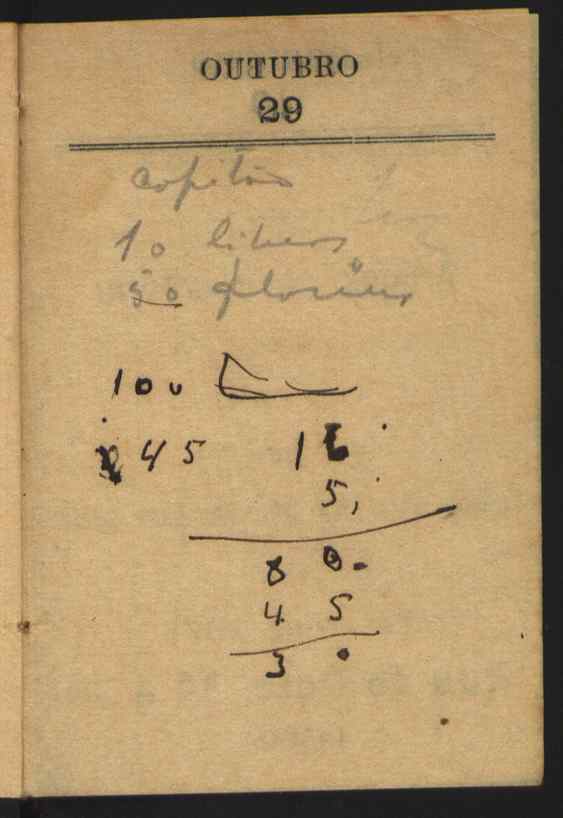 OUTUBRO
29
Capitão
10 libras
50 florins
100
45 16
5,
80
45
30